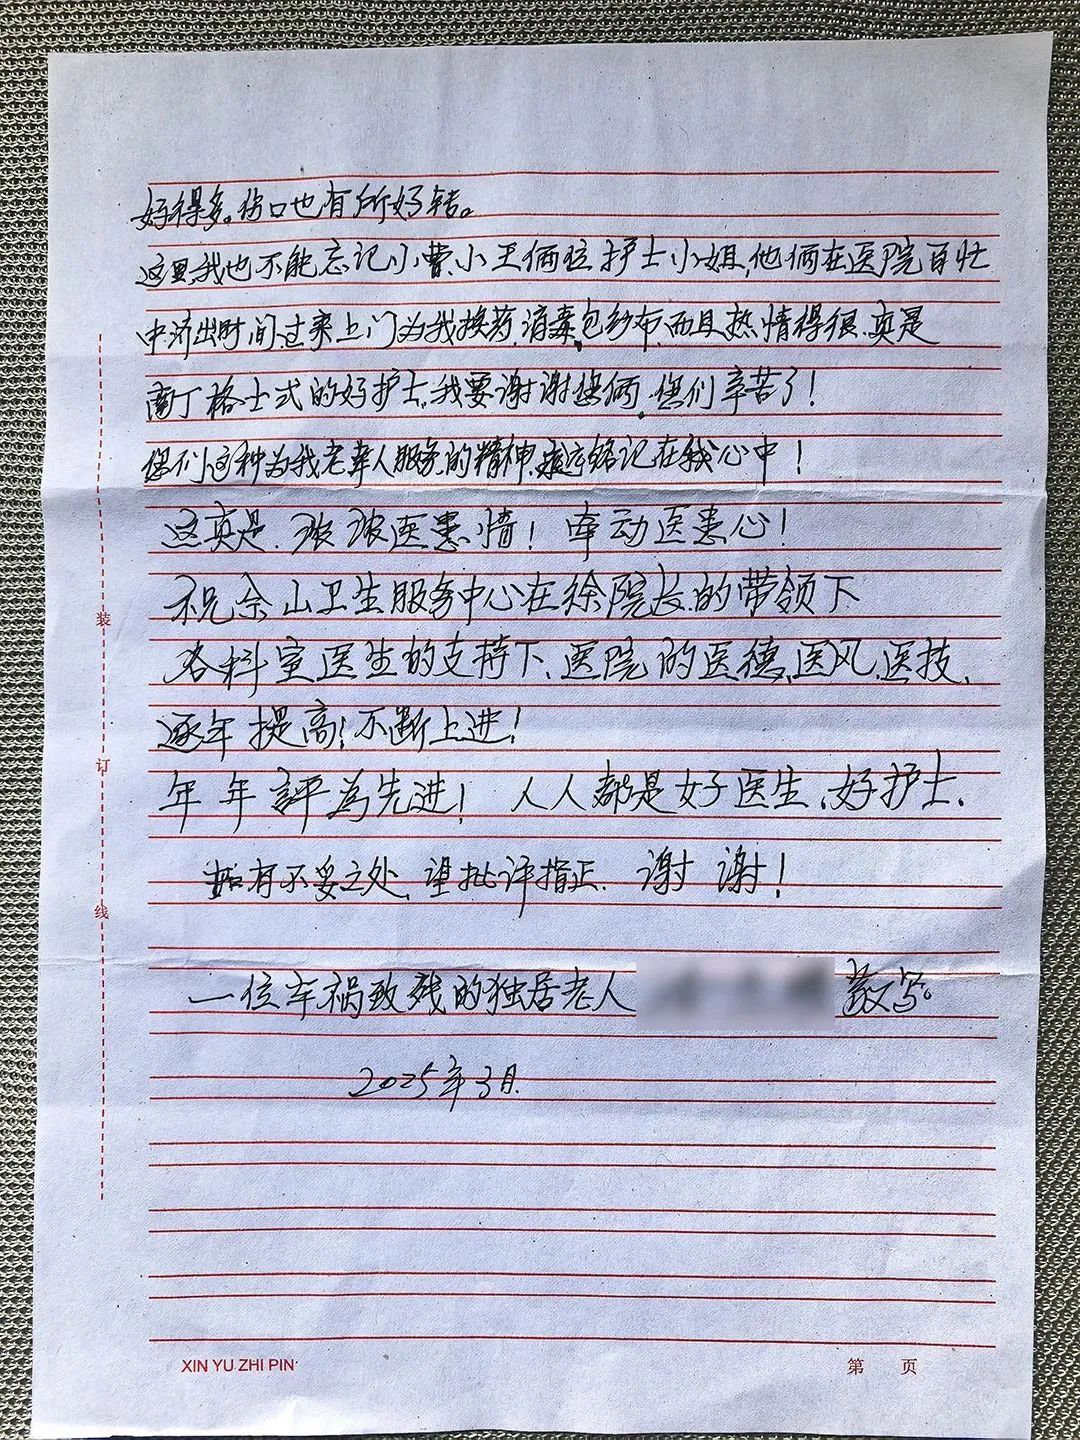 好得多。伤口也有所好转。
这里我也不能忘记小曹、小王俩位护士小姐,他俩在医院百忙
中济出时间,过来上门为我换药,消毒,包纱布,而且热情得很,真是
南丁格士式的好护士,我要谢谢您俩,您们辛苦了!
您们这种为我老年人服务的精神,永远铭记在我心中!
这真是、浓浓医患情!牵动医患心!
祝佘山卫生服务中心在徐院长的带领下
各科室医生的支持下、医院的医德、医风、医技、
逐年提高!不断上进!
年年評為先进!人人都是好医生、好护士、
如有不妥之处,望批评指正.谢谢!
一位车祸致残的独居老人 敬写。
2025年3月.
装
订
线
XIN YU ZHI PIN
第 页